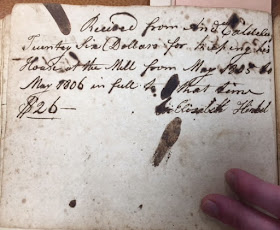 Received from And Caldwell
Twenty Six Dollars for keeping
House at the Mill from May 1805 to
May 1806 in full to that time
$26— Elizabeth